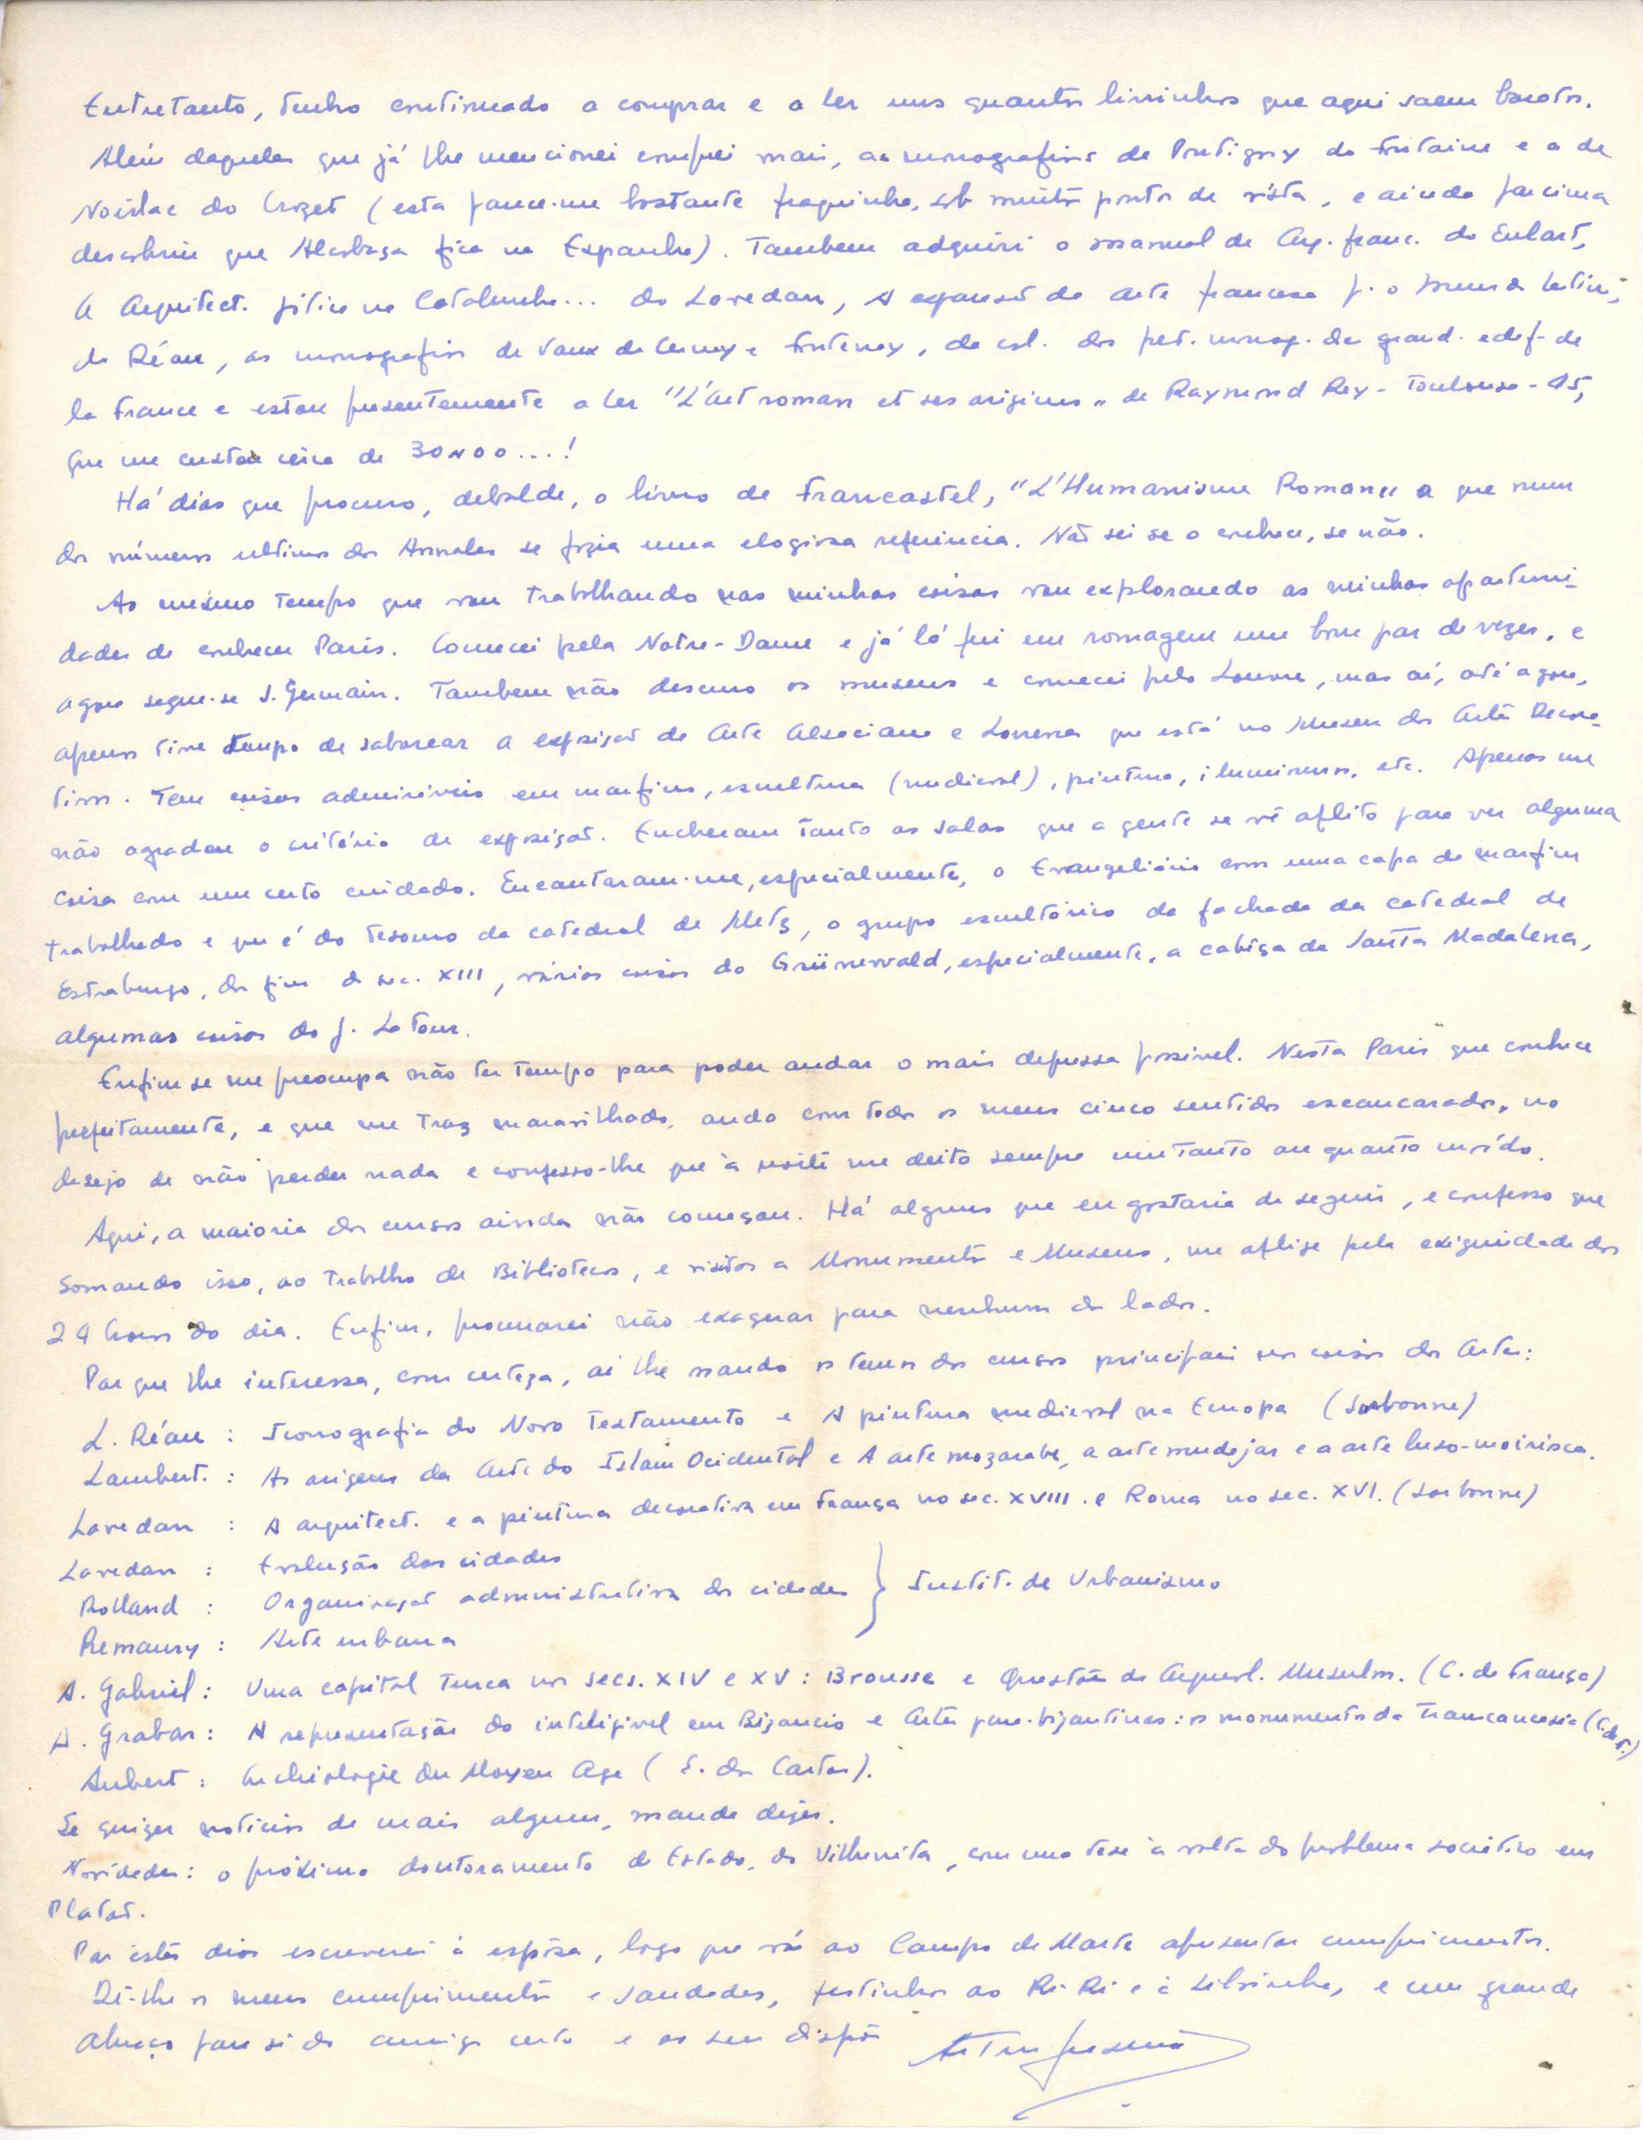 Entretanto, tenho continuado a comprar e a ler uns quantos livrinhos que aqui saem baratos.
Além daqueles que já lhe mencionei comprei mais, as monografias de Pontigny do Fontaine e a de
Noirlac do Crozet (esta parece-me bastante fraquinha, sob muitos pontos de vista, e ainda por cima
descobriu que Alcobaça fica na Espanha). Tambem adquiri o manual de Arq. franc. do Enlart,
A Arquitect. gótica na Catalunha... do Lavedan, A expansão da arte francesa p. o mundo latino,
do Réau, as monografias de Vaux de Cernay e Fontenay, da col. das pet. monog. des grand. edif. de
la France e estou presentemente a ler "L'art roman et ses origines" de Raymond Rey - Toulouse - 45,
que me custou cêrca de 30$00...!
Há dias que procuro, debalde, o livro de Francastel, "L'Humanisme Roman" a que num
dos números ultimos dos Annales se fazia uma elogiosa referência. Não sei se o conhece, se não.
Ao mesmo tempo que vou trabalhando nas minhas coisas vou explorando as minhas oportuni-
dades de conhecer Paris. Comecei pela Notre-Dame e já lá fui em romagem um bom par de vezes, e
agora segue-se S. Germain. Tambem não descuro os museus e comecei pelo Louvre, mas aí, até agora,
apenas tive tempo de saborear a exposição de Arte Alsaciana e Lorena que está no Museu das Artes Decora-
tivas. Tem coisas admiráveis em marfins, escultura (medieval), pintura, iluminuras, etc. Apenas me
não agradou o critério de exposição. Encheram tanto as salas que a gente se vê aflito para ver alguma
coisa com um certo cuidado. Encantaram-me, especialmente, o Evangeliário com uma capa de marfim
trabalhado e que é do tesouro da catedral de Metz, o grupo escultórico da fachada da catedral de
Estraburgo, do fim do sec. XIII, várias coisas do Grünewald, especialmente, a cabeça da Santa Madalena,
algumas coisas do J. La Tour.
Enfim se me preocupa não ter tempo para poder andar o mais depressa possivel. Nesta Paris que conhece
perfeitamente, e que me traz maravilhado, ando com todos os meus cinco sentidos escancarados, no
desejo de não perder nada e confesso-lhe que à noite me deito sempre um tanto ou quanto moído.
Aqui, a maioria dos cursos ainda não começou. Há alguns que eu gostaria de seguir, e confesso que
somando isso, ao trabalho de Bibliotecas, e visitas a Monumentos e Museus, me aflige pela exiguidade das
24 horas do dia. Enfim, procurarei não exagerar para nenhum dos lados.
Por que lhe interessa, com certeza, aí lhe mando os temas dos cursos principais nas coisas das Artes:
L. Réau : Iconografia do Novo Testamento e A pintura medieval na Europa (Sorbonne)
Lambert. : As origens da Arte do Islam Ocidental e A arte mozarabe, a arte mudejar e a arte luso-moirisca.
Lavedan : A arquitect. e a pintura decorativa em França no sec. XVIII. e Roma no sec. XVI. (Sorbonne)
Lavedan : Evolução das cidades
Rolland : Organização administrativa das cidades } Instit. de Urbanismo
Remaury : Arte urbana
A. Gabriel : Uma capital Turca nos secs. XIV e XV : Brousse e Questões de Arqueol. Musulm. (C. de França)
A. Grabar : A representação do inteligivel em Bizancio e Artes para-bizantinas : os monumentos da Transcaucasia (C. de F.)
Aubert : Archéologie du Moyen Age (E. das Cartas).
Se quizer noticias de mais algum, mande dizer.
Novidades : o próximo doutoramento de Estado, do Vilhenita, com uma tese à volta do problema socrático em
Platão.
Por êstes dias escreverei à espôsa, logo que vá ao Campo de Marte apresentar cumprimentos.
Dê-lhe os meus cumprimentos e saudades, festinhas ao Ri-Ri e à Silvinha, e um grande
abraço para si do amigo certo e ao seu dispôr